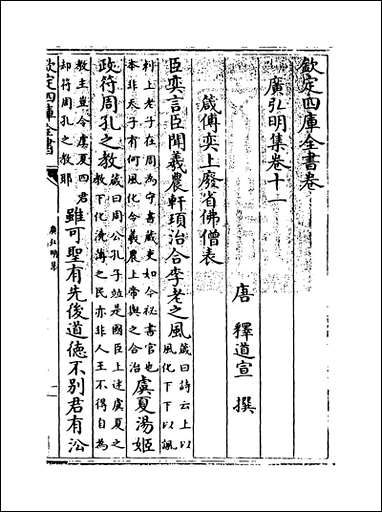 欽定四庫全書卷
廣弘明集卷十一
唐 釋道宣 撰
箴傅奕上廢省佛僧表
臣奕言臣聞羲農軒頊治合李老之風箴曰詩云上以風化下下以諷
刺上老子在周為守書藏吏如今秘書官也本非天子有何風化令羲農上帝與之合治虞夏湯姬
政符周孔之教箴曰周公孔子竝是國臣上述虞夏之教下化澆薄之民亦非人王不得自為
教主豈令虞夏四君却符周孔之教耶雖可聖有先後道德不別君有㳂
欽定四庫全書
廣弘明集
一